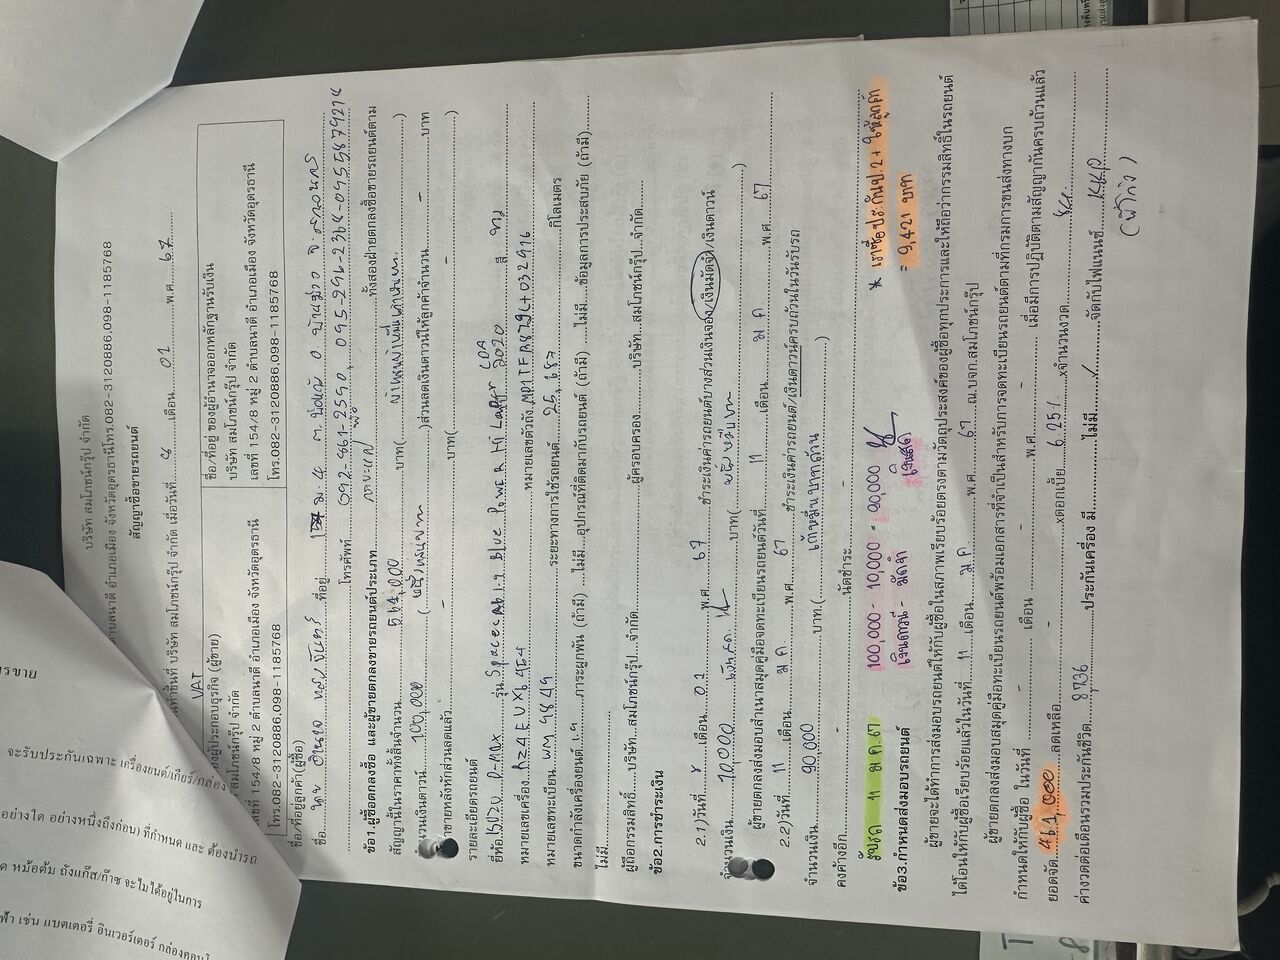 บริษัท สมโภชน์กรุ๊ป จำกัด
ตำบลนาดี อำเภอเมือง จังหวัดอุดรธานีโทร.082-3120886,098-1185768
สัญญาซื้อขายรถยนต์
ทำขึ้นที่ บริษัท สมโภชน์กรุ๊ป จำกัด เมื่อวันที่ 8 เดือน 01 พ.ศ. 67
VAT
ของผู้ประกอบธุรกิจ (ผู้ขาย)
สมโภชน์กรุ๊ป จำกัด
เลขที่ 154/8 หมู่ 2 ตำบลนาดี อำเภอเมือง จังหวัดอุดรธานี
โทร.082-3120886,098-1185768
ชื่อ/ที่อยู่ ของผู้มีอำนาจออกหลักฐานรับเงิน
บริษัท สมโภชน์กรุ๊ป จำกัด
เลขที่ 154/8 หมู่ 2 ตำบลนาดี อำเภอเมือง จังหวัดอุดรธานี
โทร.082-3120886,098-1185768
ชื่อ/ที่อยู่ลูกค้า(ผู้ซื้อ)
ชื่อ นาย ที่อยู่ ม.4 จ.สกลนคร
โทรศัพท์ 092-861-2590, 095-296-2368-0955879214
ข้อ1.ผู้ซื้อตกลงซื้อ และผู้ขายตกลงขายรถยนต์ประเภท กระบะ ทั้งสองฝ่ายตกลงซื้อขายรถยนต์ตาม
สัญญานี้ในราคาทั้งสิ้นจำนวน 564,000 บาท( )
จำนวนเงินดาวน์ 100,000 (หนึ่งแสนบาท )ส่วนลดเงินดาวน์ให้ลูกค้าจำนวน - บาท
ราคาขายหลังหักส่วนลดแล้ว - บาท( - )
รายละเอียดรถยนต์
ยี่ห้อ ISUZU D-MAX รุ่น Spacecab 1.9 Blue Power Hi Lander L DA 2020 สี เทา
หมายเลขเครื่อง RZ4E UX6454 หมายเลขตัวถัง MP1TFR87JLT032916
หมายเลขทะเบียน ผม 9849 ระยะทางการใช้รถยนต์ 25,687 กิโลเมตร
ขนาดกำลังเครื่องยนต์ 1.9 ภาระผูกพัน (ถ้ามี) ไม่มี อุปกรณ์ที่ติดมากับรถยนต์ (ถ้ามี) ไม่มี ข้อมูลการประสบภัย (ถ้ามี)
ไม่มี
ผู้ถือกรรมสิทธิ์ บริษัท สมโภชน์กรุ๊ป จำกัด ผู้ครอบครอง บริษัท สมโภชน์กรุ๊ป จำกัด
ข้อ2.การชำระเงิน
2.1)วันที่ 8 เดือน 01 พ.ศ. 67 ชำระเงินค่ารถยนต์บางส่วนเงินจอง/เงินมัดจำ/เงินดาวน์
จำนวนเงิน 10,000 เงินสด บาท( หนึ่งหมื่นบาท )
ผู้ขายตกลงส่งมอบสำเนาสมุดคู่มือจดทะเบียนรถยนต์วันที่ 11 เดือน ม ค พ.ศ. 67
2.2)วันที่ 11 เดือน ม ค พ.ศ. 67 ชำระเงินค่ารถยนต์/เงินดาวน์ครบถ้วนในวันรับรถ
จำนวนเงิน 90,000 บาท.( เก้าหมื่นบาทถ้วน )
คงค้างอีก - นัดชำระ -
รับรถ 11 ม ค 67 100,000 - 10,000 = 90,000 * เราซื้อประกันป.2+ ให้ลูกค้า
เงินดาวน์ - มัดจำ เงินสด = 9,421 บาท
ข้อ3.กำหนดส่งมอบรถยนต์
ผู้ขายจะได้ทำการส่งมอบรถยนต์ให้กับผู้ซื้อในสภาพเรียบร้อยตรงตามวัตถุประสงค์ของผู้ซื้อทุกประการและให้ถือว่ากรรมสิทธิ์ในรถยนต์
ได้โอนให้กับผู้ซื้อเรียบร้อยแล้วในวันที่ 11 เดือน ม ค พ.ศ 67 ณ.บจก.สมโภชน์กรุ๊ป
ผู้ขายตกลงส่งมอบสมุดคู่มือทะเบียนรถยนต์พร้อมเอกสารที่จำเป็นสำหรับการจดทะเบียนรถยนต์ตามที่กรมการขนส่งทางบก
กำหนดให้กับผู้ซื้อ ในวันที่ - เดือน - พ.ศ. - เมื่อมีการปฏิบัติตามสัญญากันครบถ้วนแล้ว
ยอดจัด 464,000 ลดเหลือ xดอกเบี้ย 6.25% xจำนวนงวด 84
ค่างวดต่อเดือนรวมประกันชีวิต 8,736 ประกันเครื่อง มี ไม่มี ✓ จัดกับไฟแนนซ์ KKP
การขาย
จะรับประกันเฉพาะ เครื่องยนต์/เกียร์/กล่อง
อย่างใด อย่างหนึ่งถึงก่อน) ที่กำหนด และ ต้องนำรถ
หม้อต้ม ถังแก๊ส/ก๊าซ จะไม่ได้อยู่ในการ
ฟ้า เช่น แบตเตอรี่ อินเวอร์เตอร์ กล่องคอนโ